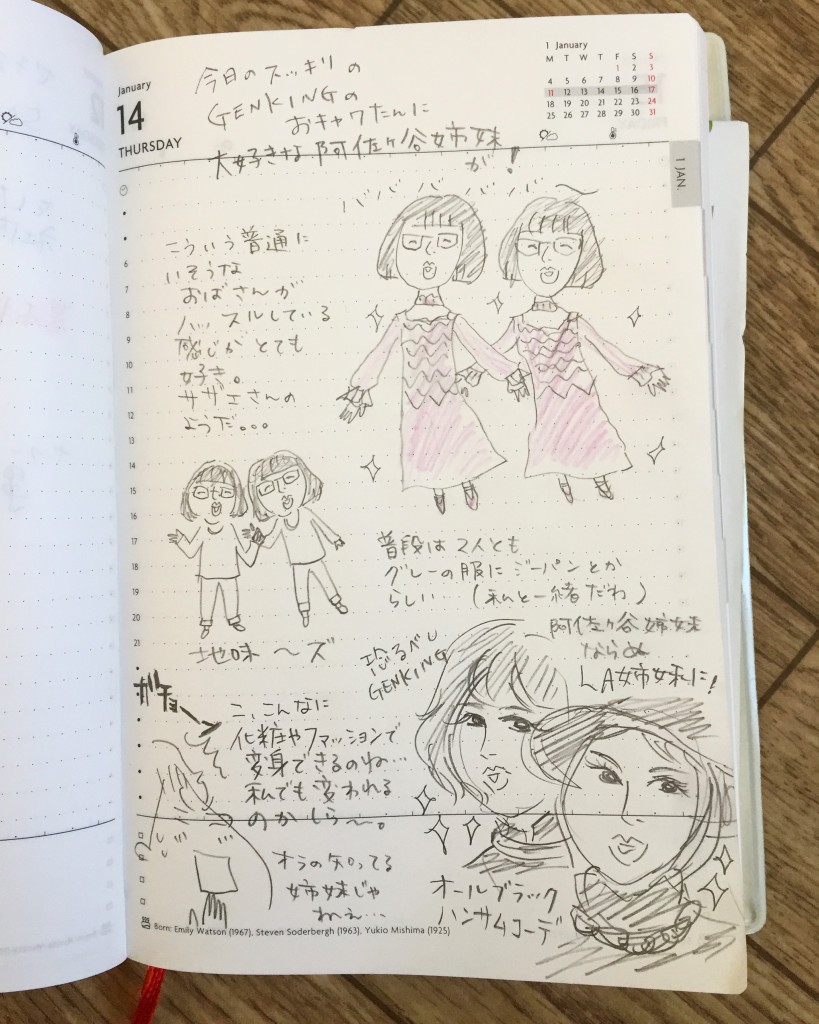 January
14
THURSDAY
1 January
M T W T F S S
1 2 3
4 5 6 7 8 9 10
11 12 13 14 15 16 17
18 19 20 21 22 23 24
25 26 27 28 29 30 31
1 JAN.
今日のスッキリの
GENKINGの
おキャワたんに
大好きな阿佐ヶ谷姉妹
が!
ババババババ〜
こういう普通に
いそうな
おばさんが
ハッスルしている
感じがとても
好き。
サザエさんの
ようだ。。。
6
7
8
9
10
11
12
13
14
15
16
17
18
19
20
21
地味〜ズ
普段は2人とも
グレーの服にジーパンとか
らしい…(私と一緒だわ)
恐るべし
GENKING
阿佐ヶ谷姉妹
ならぬ
LA姉妹に!
ガチョーン
こ、こんなに
化粧やファッションで
変身できるのね…
私でも変われる
のかしら〜。
オラの知ってる
姉妹じゃ
ねえ…
オールブラック
ハンサムコーデ
Born: Emily Watson (1967), Steven Soderbergh (1963), Yukio Mishima (1925)